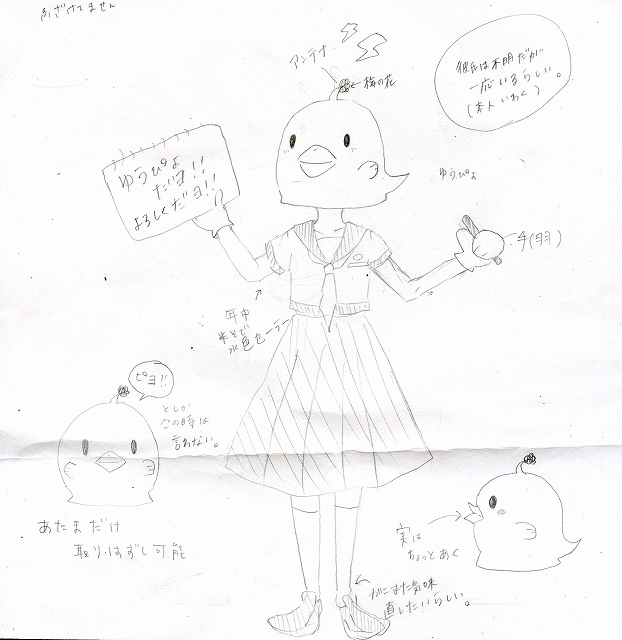 ふざけてません
アンテナ
←梅の花
彼氏は不明だが
一応いるらしい。
(本人いわく)
ゆうぴよ
だヨ!!
よろしくだヨ!!
ゆうぴよ
手(羽)
年中
半そで
水色セーラー
ピヨ!!
としか
この時は
言わない。
あたまだけ
取りはずし可能
実は
ちょっとあく
がにまた気味
直したいらしい。